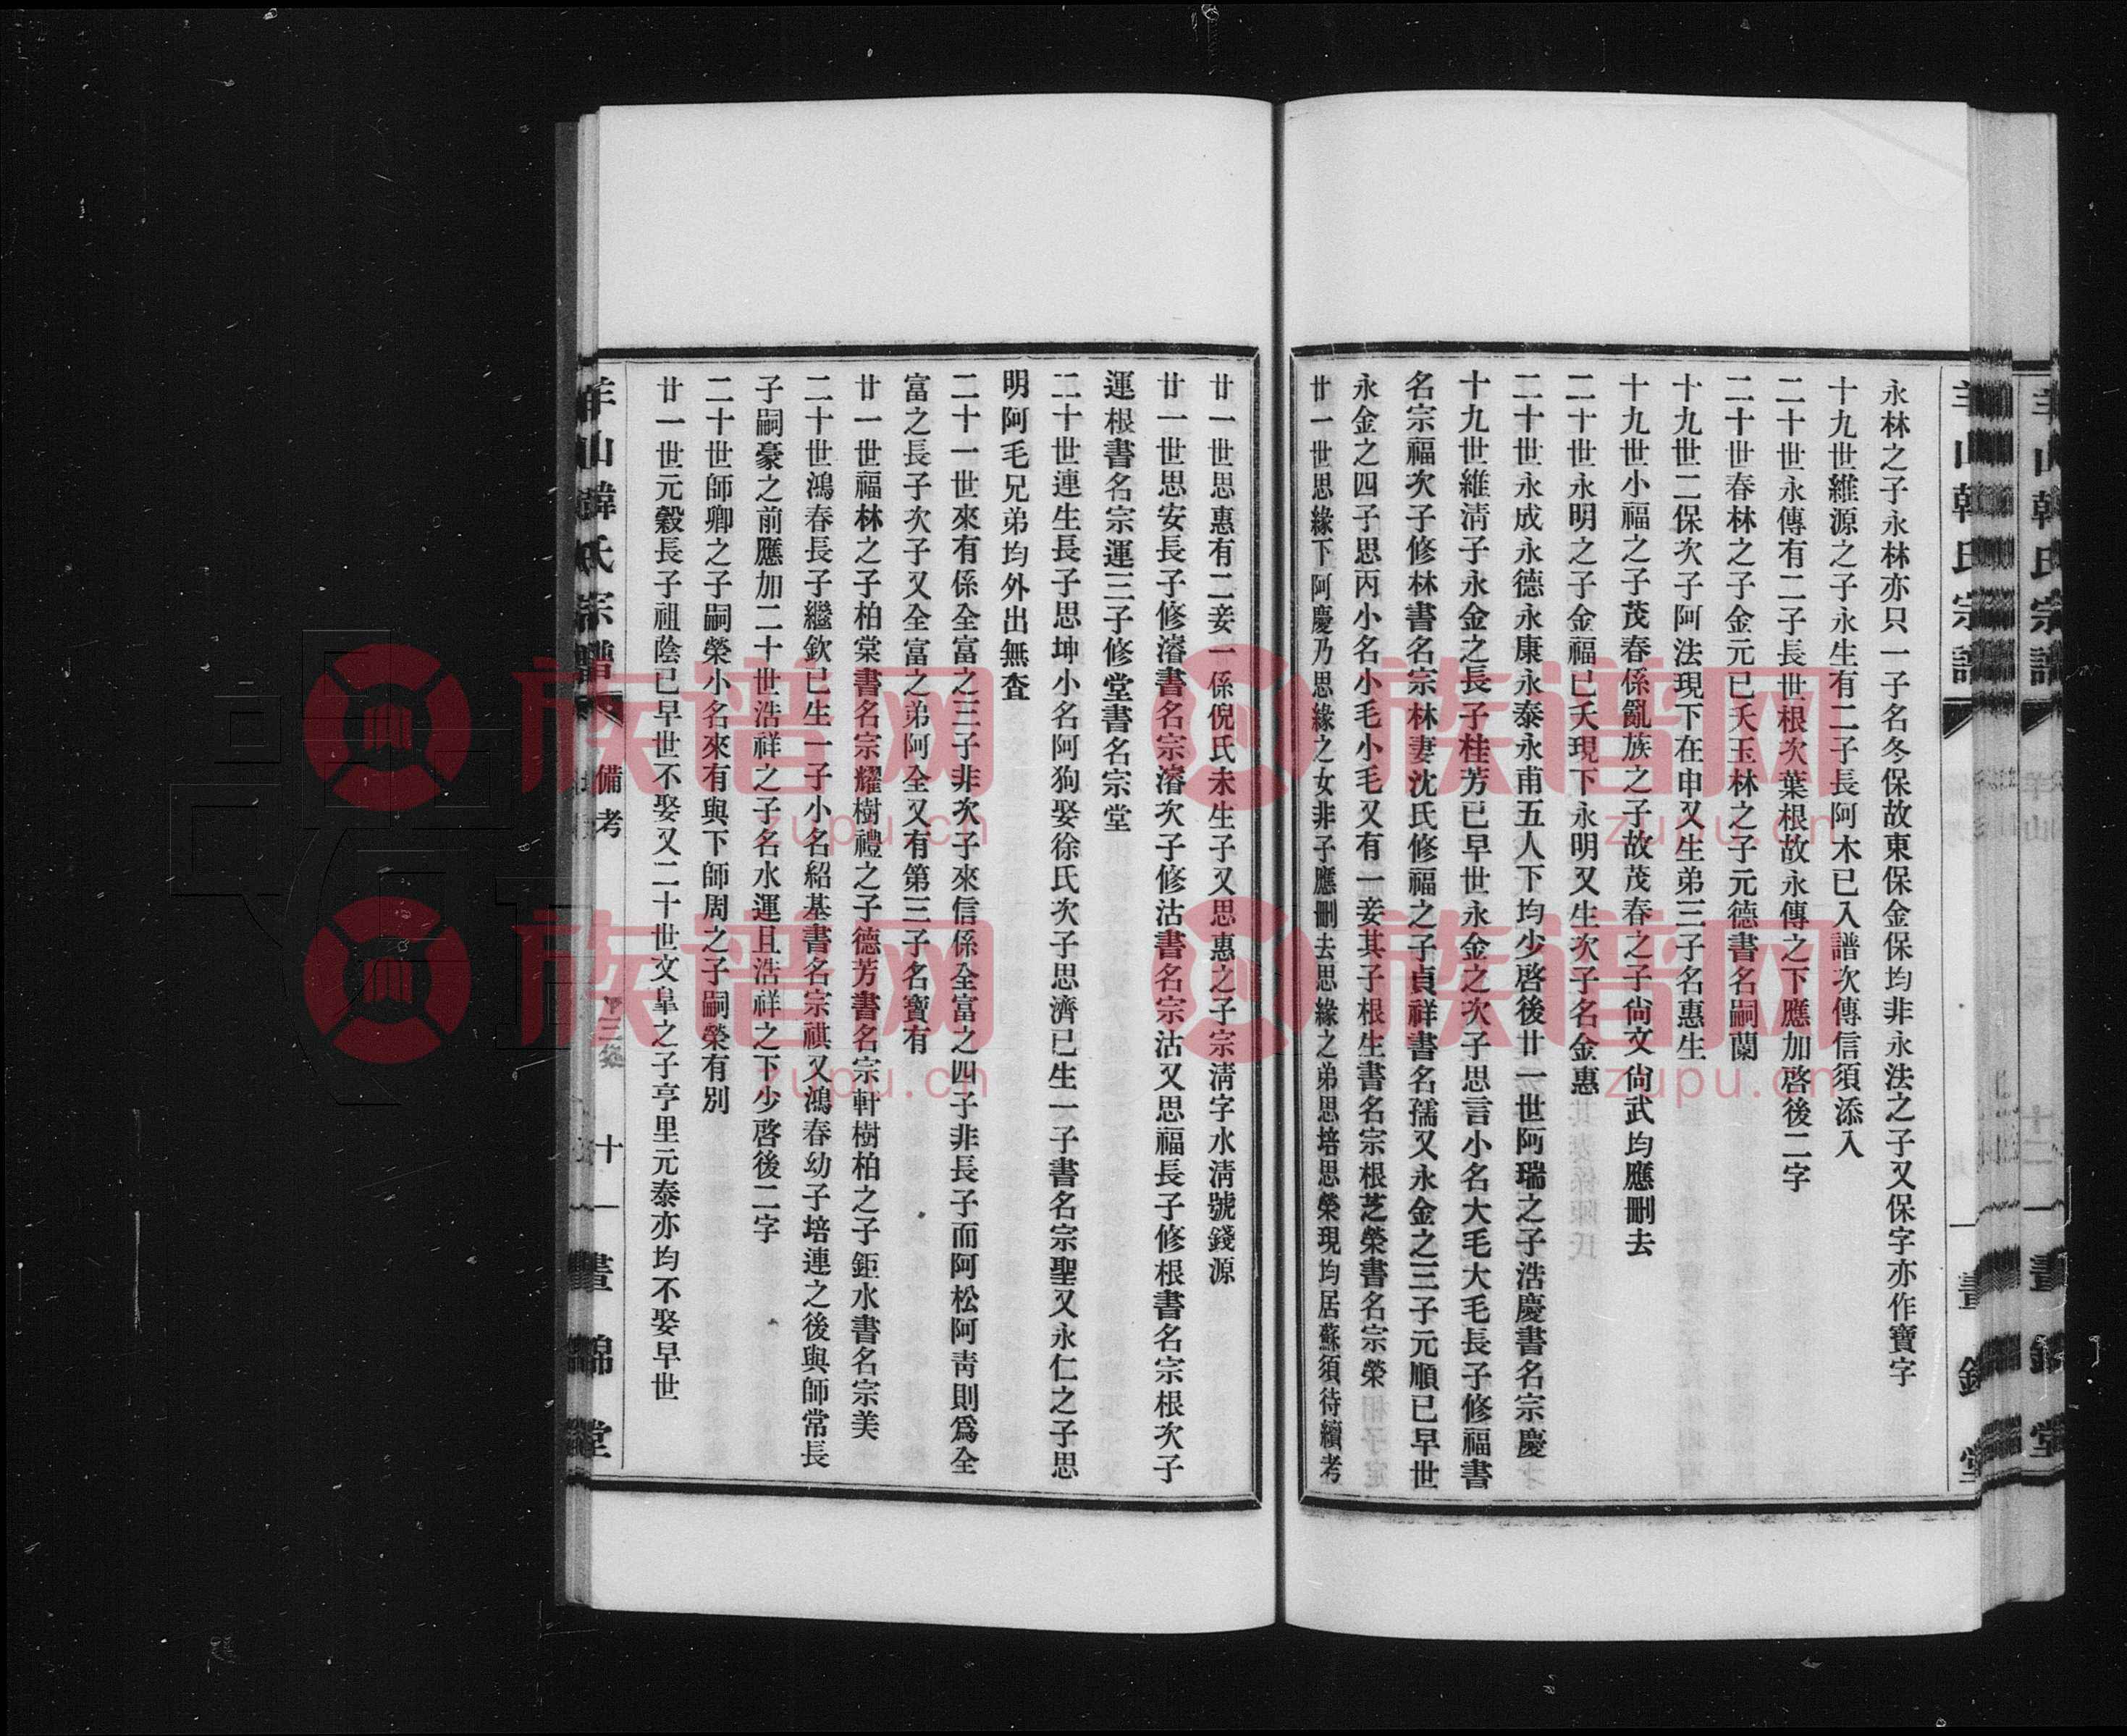 永林之子永林亦只一子名冬保故東保金保均非永法之子又保字亦作寶字
十九世維源之子永生有二子長阿木已入譜次傳信須添入
二十世永傳有二子長世根次葉根故永傳之下應加啓後二字
二十世春林之子金元已夭玉林之子元德書名嗣蘭
十九世二保次子阿法現下在申又生弟三子名惠生
十九世小福之子茂春係亂族之子故茂春之子尙文尙武均應刪去
二十世永明之子金福已夭現下永明又生次子名金惠
二十世永成永德永康永泰永甫五人下均少啓後廿一世阿瑞之子浩慶書名宗慶
十九世維淸子永金之長子桂芳已早世永金之次子思言小名大毛大毛長子修福書
名宗福次子修林書名宗林妻沈氏修福之子貞祥書名孺又永金之三子元順已早世
永金之四子思丙小名小毛小毛又有一妾其子根生書名宗根芝榮書名宗榮
廿一世思緣下阿慶乃思緣之女非子應刪去思緣之弟思培思榮現均居蘇須待續考
廿一世思惠有二妾一係倪氏未生子又思惠之子宗淸字水淸號錢源
廿一世思安長子修濬書名宗濬次子修沽書名宗沽又思福長子修根書名宗根次子
運根書名宗運三子修堂書名宗堂
二十世連生長子思坤小名阿狗娶徐氏次子思濟已生一子書名宗聖又永仁之子思
明阿毛兄弟均外出無查
二十一世來有係全富之三子非次子來信係全富之四子非長子而阿松阿靑則爲全
富之長子次子又全富之弟阿全又有第三子名寶有
廿一世福林之子柏棠書名宗耀樹禮之子德芳書名宗軒樹柏之子鉅水書名宗美
二十世鴻春長子繼欽已生一子小名紹基書名宗祺又鴻春幼子培連之後與師常長
子嗣豪之前應加二十世浩祥之子名水運且浩祥之下少啓後二字
二十世師卿之子嗣榮小名來有與下師周之子嗣榮有別
廿一世元穀長子祖蔭已早世不娶又二十世文臯之子亨里元泰亦均不娶早世
羊山韓氏宗譜
備考
十一
晝錦堂
族谱网
zupu.cn
族谱网
zupu.cn
族谱网
zupu.cn
族谱网
zupu.cn